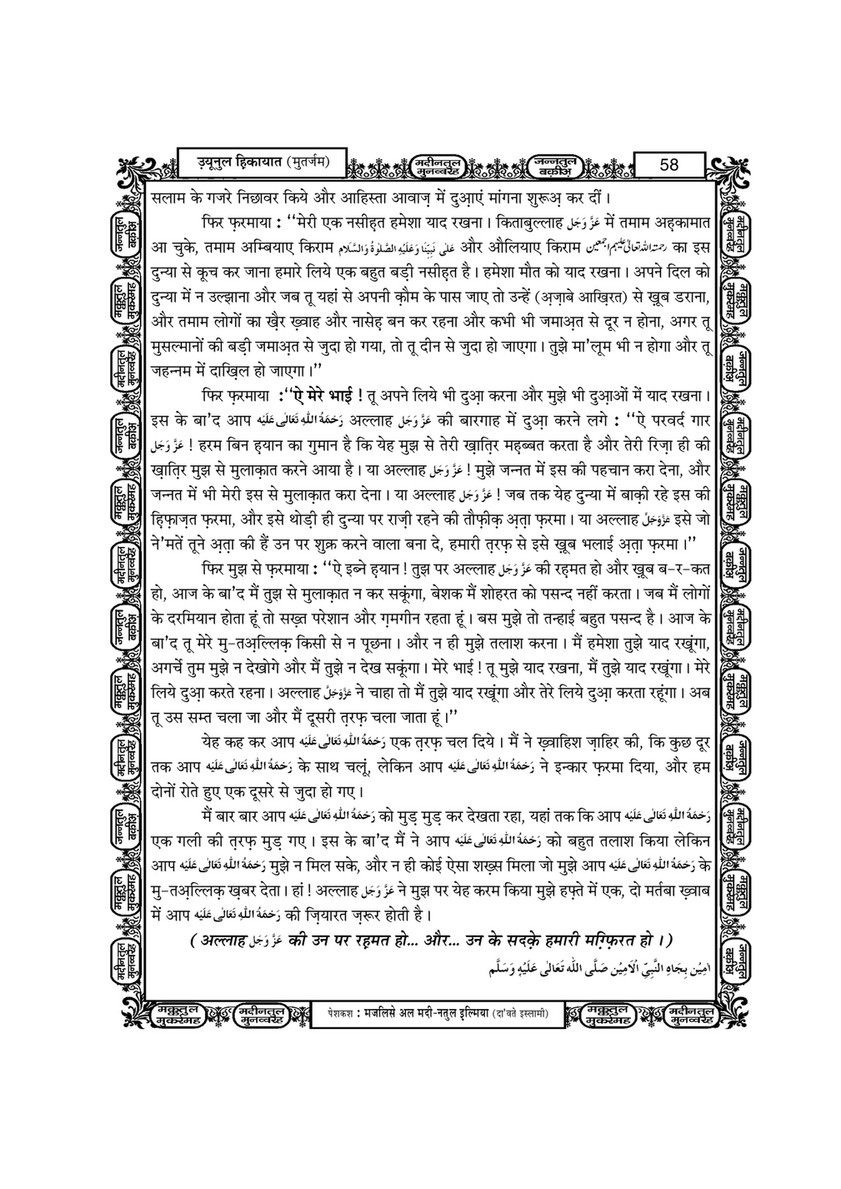 उ़यूनुल ह़िकायात (मुतर्जम)
मदीनतुल मुनव्वरह
जन्नतुल बक़ीअ़
58
सलाम के गजरे निछावर किये और आहिस्ता आवाज़ में दुआ़एं मांगना शुरूअ़ कर दीं ।
फिर फ़रमाया : ‘‘मेरी एक नसीह़त हमेशा याद रखना । किताबुल्लाह عَزَّ وَجَلَّ में तमाम अह़कामात
आ चुके, तमाम अम्बियाए किराम عَلٰى نَبِيِّنَا وَعَلَيْهِ الصَّلٰوةُ وَالسَّلَام और औलियाए किराम رحمة الله تعالى عليهم اجمعين का इस
दुन्या से कूच कर जाना हमारे लिये एक बहुत बड़ी नसीह़त है । हमेशा मौत को याद रखना । अपने दिल को
दुन्या में न उल्झाना और जब तू यहां से अपनी क़ौम के पास जाए तो उन्हें (अ़ज़ाबे आख़िरत) से ख़ूब डराना,
और तमाम लोगों का ख़ैर ख़्वाह और नासेह़ बन कर रहना और कभी भी जमाअ़त से दूर न होना, अगर तू
मुसल्मानों की बड़ी जमाअ़त से जुदा हो गया, तो तू दीन से जुदा हो जाएगा । तुझे मा’लूम भी न होगा और तू
जहन्नम में दाख़िल हो जाएगा ।’’
फिर फ़रमाया :‘‘ऐ मेरे भाई ! तू अपने लिये भी दुआ़ करना और मुझे भी दुआ़ओं में याद रखना ।
इस के बा’द आप رَحْمَةُ اللّٰهِ تَعَالٰى عَلَيْه अल्लाह عَزَّ وَجَلَّ की बारगाह में दुआ़ करने लगे : ‘‘ऐ परवर्द गार
عَزَّ وَجَلَّ ! हरम बिन ह़यान का गुमान है कि येह मुझ से तेरी ख़ात़िर मह़ब्बत करता है और तेरी रिज़ा ही की
ख़ात़िर मुझ से मुलाक़ात करने आया है । या अल्लाह عَزَّ وَجَلَّ ! मुझे जन्नत में इस की पहचान करा देना, और
जन्नत में भी मेरी इस से मुलाक़ात करा देना । या अल्लाह عَزَّ وَجَلَّ ! जब तक येह दुन्या में बाक़ी रहे इस की
ह़िफ़ाज़त फ़रमा, और इसे थोड़ी ही दुन्या पर राज़ी रहने की तौफ़ीक़ अ़त़ा फ़रमा । या अल्लाह عَزَّوَجَلَّ इसे जो
ने’मतें तूने अ़त़ा की हैं उन पर शुक्र करने वाला बना दे, हमारी त़रफ़ से इसे ख़ूब भलाई अ़त़ा फ़रमा ।’’
फिर मुझ से फ़रमाया : ‘‘ऐ इब्ने ह़यान ! तुझ पर अल्लाह عَزَّ وَجَلَّ की रह़मत हो और ख़ूब ब-र-कत
हो, आज के बा’द मैं तुझ से मुलाक़ात न कर सकूंगा, बेशक मैं शोहरत को पसन्द नहीं करता । जब मैं लोगों
के दरमियान होता हूं तो सख़्त परेशान और ग़मगीन रहता हूं । बस मुझे तो तन्हाई बहुत पसन्द है । आज के
बा’द तू मेरे मु-तअ़ल्लिक़ किसी से न पूछना । और न ही मुझे तलाश करना । मैं हमेशा तुझे याद रखूंगा,
अगर्चे तुम मुझे न देखोगे और मैं तुझे न देख सकूंगा । मेरे भाई ! तू मुझे याद रखना, मैं तुझे याद रखूंगा । मेरे
लिये दुआ़ करते रहना । अल्लाह عَزَّوَجَلَّ ने चाहा तो मैं तुझे याद रखूंगा और तेरे लिये दुआ़ करता रहूंगा । अब
तू उस सम्त चला जा और मैं दूसरी त़रफ़ चला जाता हूं ।’’
येह कह कर आप رَحْمَةُ اللّٰهِ تَعَالٰى عَلَيْه एक त़रफ़ चल दिये । मैं ने ख़्वाहिश ज़ाहिर की, कि कुछ दूर
तक आप رَحْمَةُ اللّٰهِ تَعَالٰى عَلَيْه के साथ चलूं, लेकिन आप رَحْمَةُ اللّٰهِ تَعَالٰى عَلَيْه ने इन्कार फ़रमा दिया, और हम
दोनों रोते हुए एक दूसरे से जुदा हो गए ।
मैं बार बार आप رَحْمَةُ اللّٰهِ تَعَالٰى عَلَيْه को मुड़ मुड़ कर देखता रहा, यहां तक कि आप رَحْمَةُ اللّٰهِ تَعَالٰى عَلَيْه
एक गली की त़रफ़ मुड़ गए । इस के बा’द मैं ने आप رَحْمَةُ اللّٰهِ تَعَالٰى عَلَيْه को बहुत तलाश किया लेकिन
आप رَحْمَةُ اللّٰهِ تَعَالٰى عَلَيْه मुझे न मिल सके, और न ही कोई ऐसा शख़्स मिला जो मुझे आप رَحْمَةُ اللّٰهِ تَعَالٰى عَلَيْه के
मु-तअ़ल्लिक़ ख़बर देता । हां ! अल्लाह عَزَّ وَجَلَّ ने मुझ पर येह करम किया मुझे हफ़्ते में एक, दो मर्तबा ख़्वाब
में आप رَحْمَةُ اللّٰهِ تَعَالٰى عَلَيْه की ज़ियारत ज़रूर होती है ।
(अल्लाह عَزَّ وَجَلَّ की उन पर रह़मत हो... और... उन के सदक़े हमारी मग़्फ़िरत हो ।)
اٰمِيْن بِجَاهِ النَّبِيِّ الْاَمِيْن صَلَّى اللّٰه تَعَالٰى عَلَيْهِ وَسَلَّم
मक्कतुल मुकर्रमह
मदीनतुल मुनव्वरह
पेशकश : मजलिसे अल मदी-नतुल इ़ल्मिया (दा’वते इस्लामी)
मक्कतुल मुकर्रमह
मदीनतुल मुनव्वरह